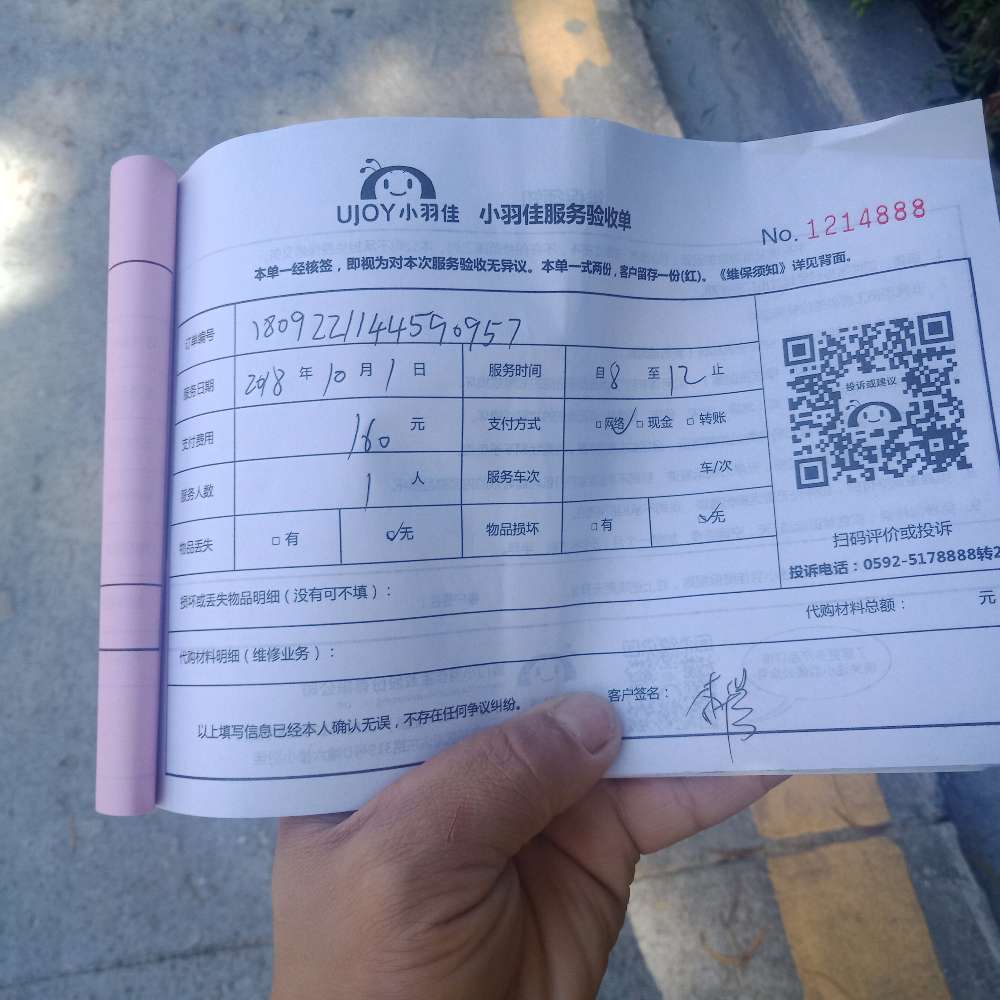 UJOY小羽佳 小羽佳服务验收单
No. 1214888
本单一经核签，即视为对本次服务验收无异议。本单一式两份，客户留存一份(红)。《维保须知》详见背面。
订单编号 180922114459０957
服务日期 2018 年 10 月 1 日 服务时间 自 8 至 12 止
支付费用 160 元 支付方式 □网络✓ □现金 □转账
服务人数 1 人 服务车次 车/次
物品丢失 □有 ☑无 物品损坏 □有 ☑无
投诉或建议
扫码评价或投诉
投诉电话：0592-5178888转2
损坏或丢失物品明细（没有可不填）：
代购材料明细（维修业务）： 代购材料总额： 元
以上填写信息已经本人确认无误，不存在任何争议纠纷。 客户签名：